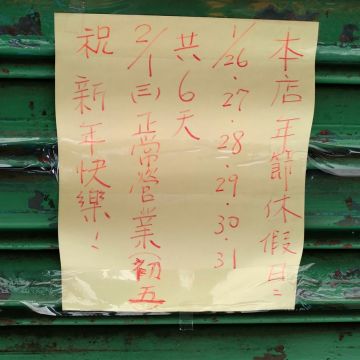 本店年節休假日:
1/26.27.28.29.30.31
共6天
2/1(三)正常營業(初五
祝新年快樂!